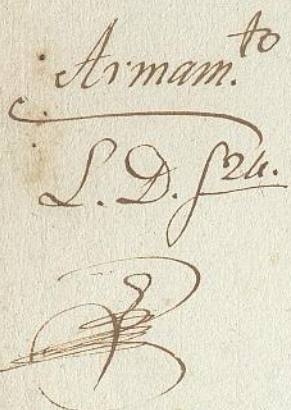 Armam.to
L. D. f 24.